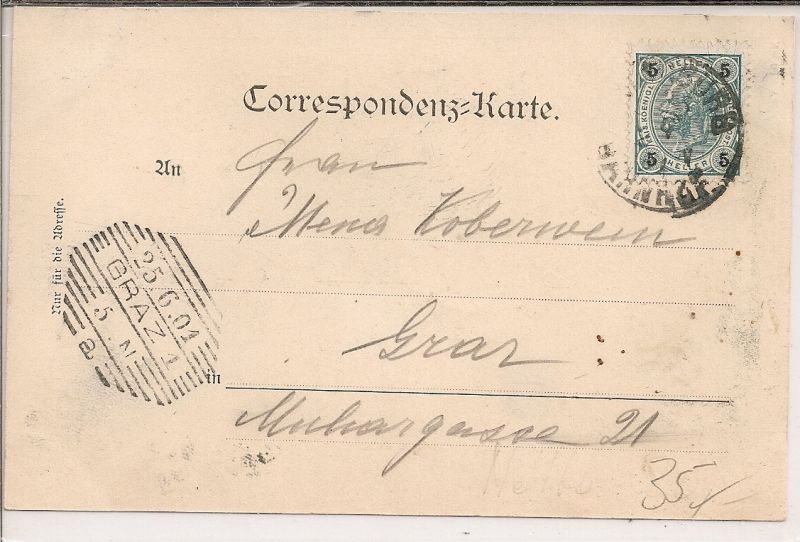 Correspondenz-Karte.
An Frau
Mena Koberwein
in Graz
Muchargasse 21
Nur für die Adresse.
25.6.01
GRAZ 1
5 N
a
5 5
5 5
HELLER
35